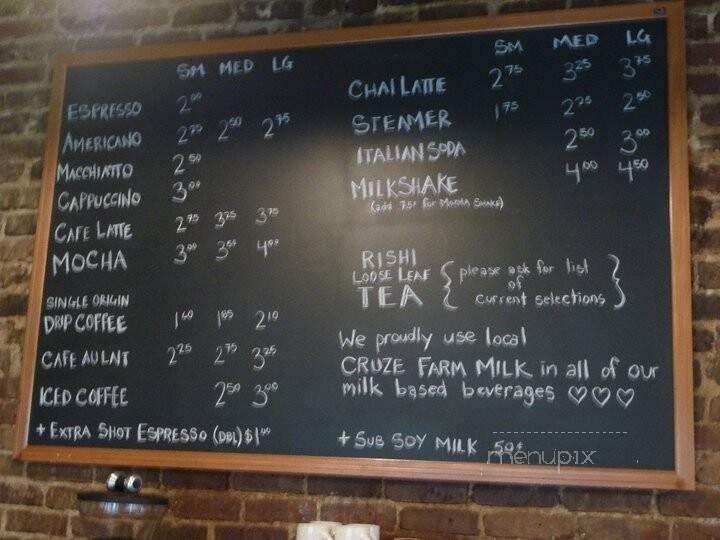 SM MED LG
ESPRESSO 2.00
AMERICANO 2.25 2.50 2.75
MACCHIATTO 2.50
CAPPUCCINO 3.00
CAFE LATTE 2.75 3.25 3.75
MOCHA 3.00 3.50 4.00
SINGLE ORIGIN
DRIP COFFEE 1.60 1.85 2.10
CAFE AU LAIT 2.25 2.75 3.25
ICED COFFEE 2.50 3.00
+ EXTRA SHOT ESPRESSO (DBL) $1.00
SM MED LG
CHAI LATTE 2.75 3.25 3.75
STEAMER 1.75 2.25 2.50
ITALIAN SODA 2.50 3.00
MILKSHAKE 4.00 4.50
(add 75¢ for Mocha Shake)
RISHI
LOOSE LEAF
TEA
{ please ask for list
of
current selections }
We proudly use local
CRUZE FARM MILK in all of our
milk based beverages ♡♡♡
+ SUB SOY MILK 50¢
menupix